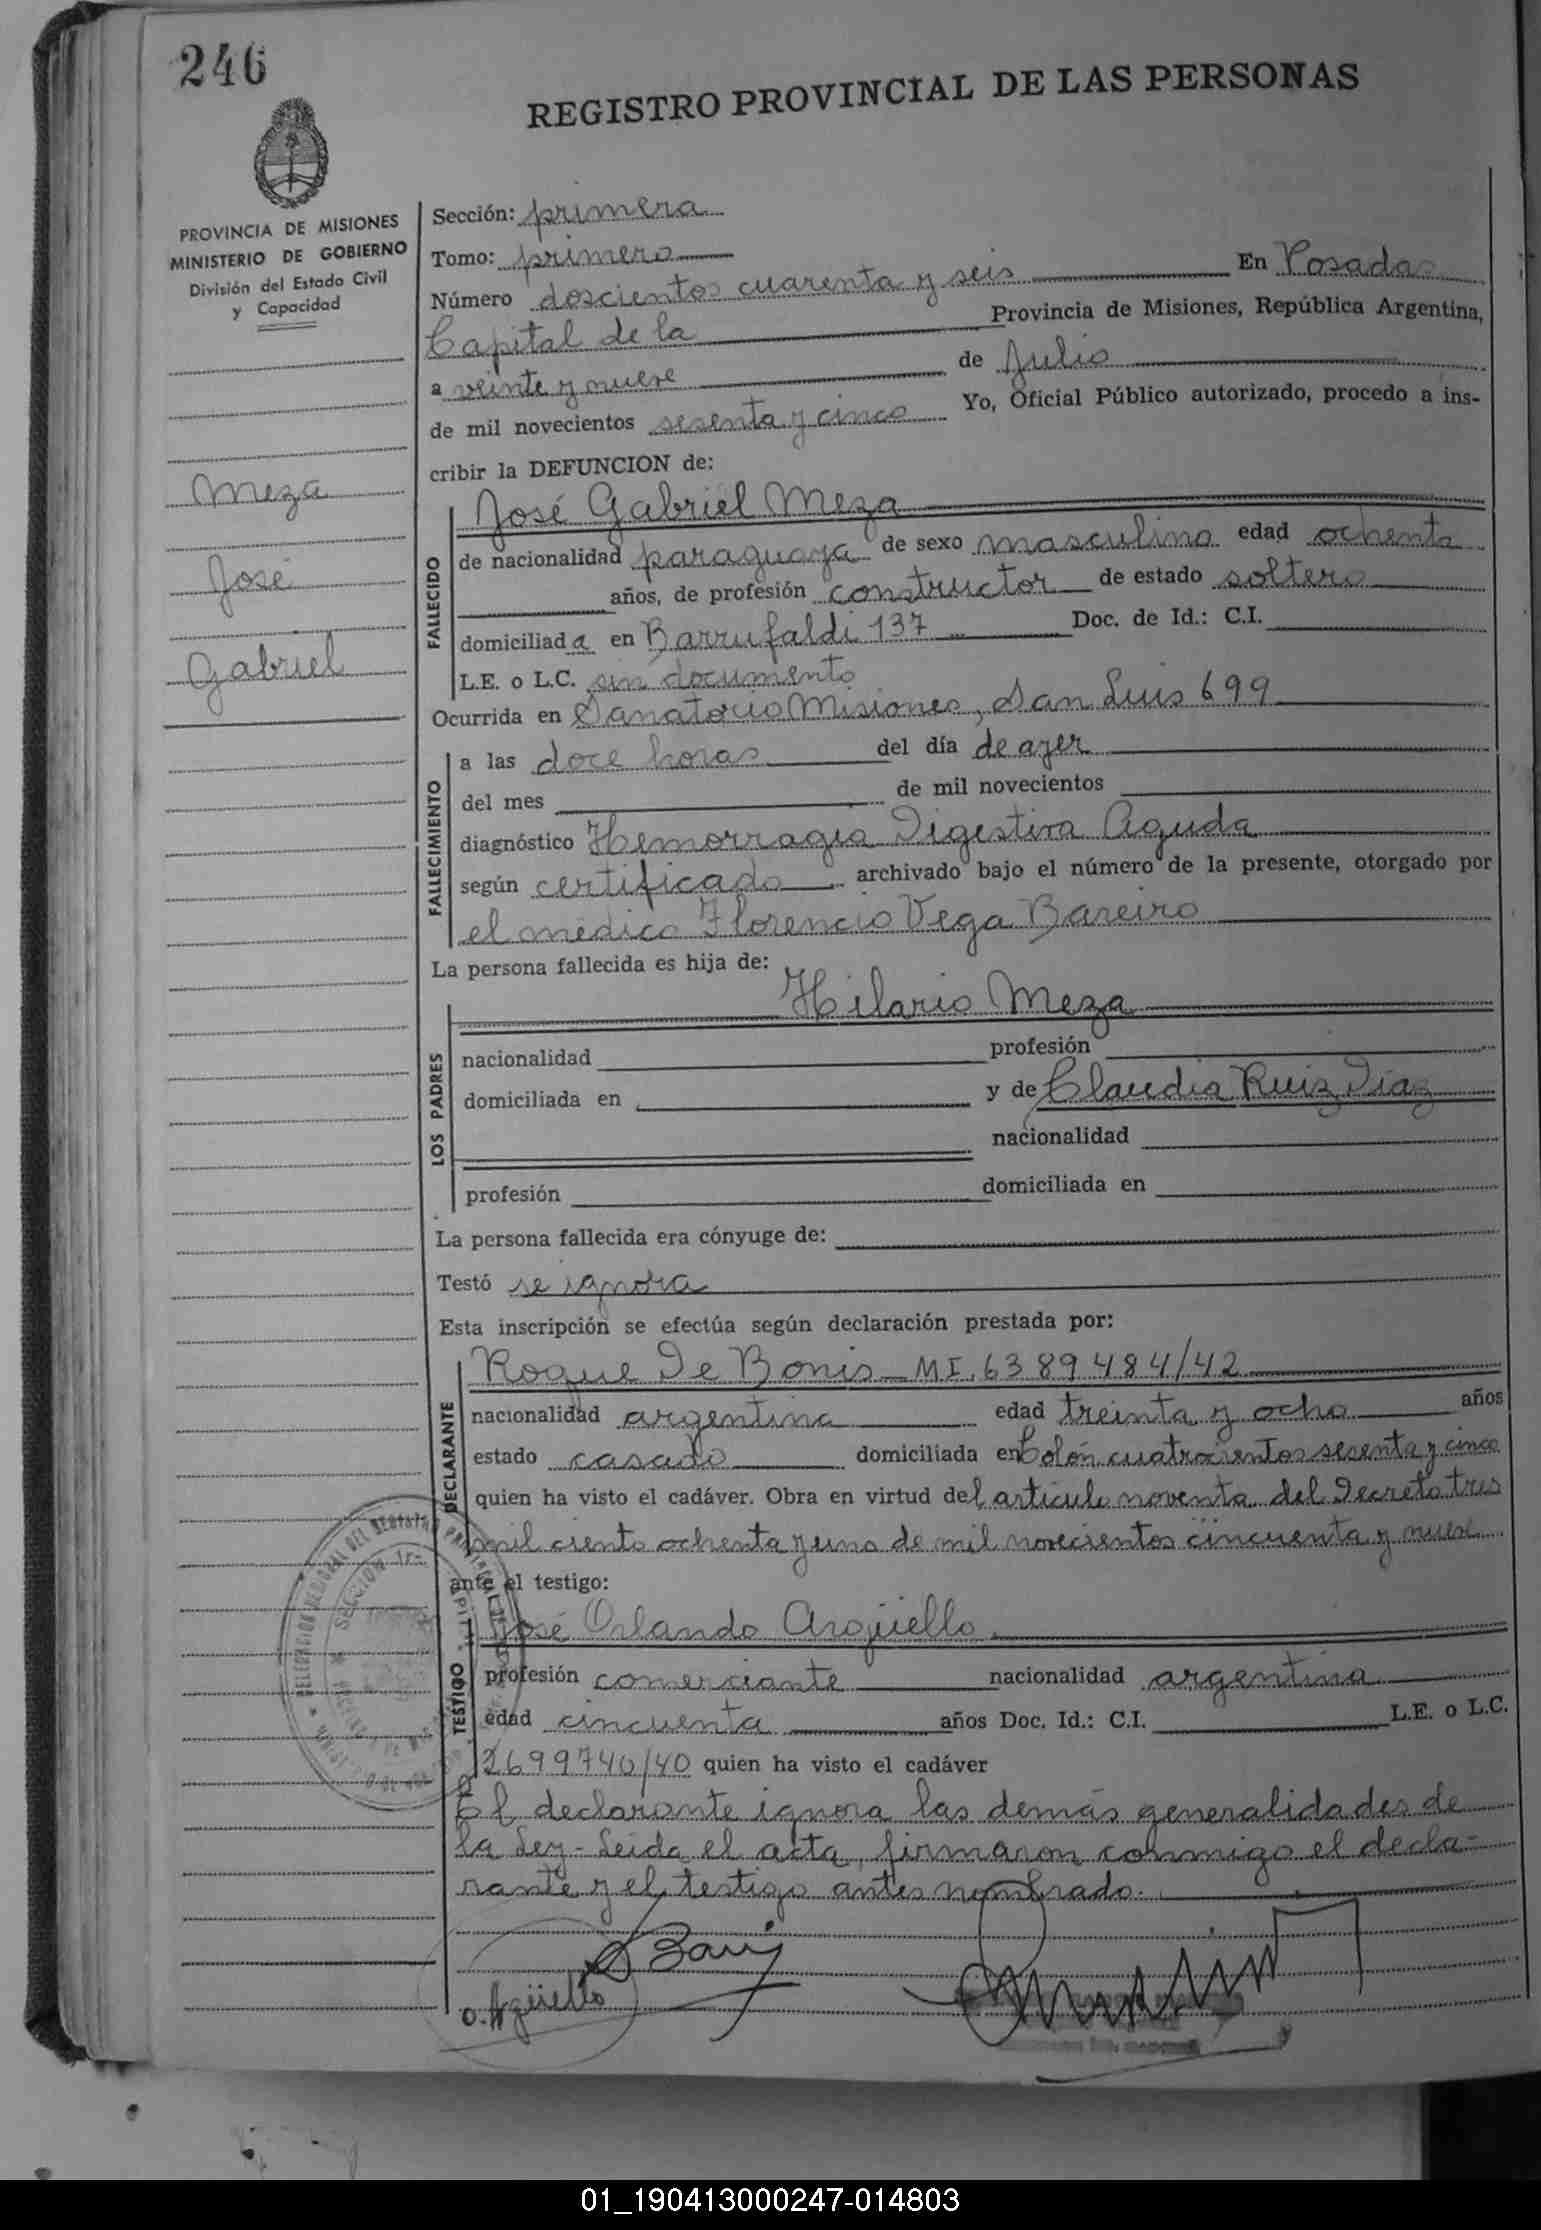 246
REGISTRO PROVINCIAL DE LAS PERSONAS
PROVINCIA DE MISIONES
MINISTERIO DE GOBIERNO
División del Estado Civil
y Capacidad
Meza
José
Gabriel
Sección: primera
Tomo: primero
Número doscientos cuarenta y seis En Posadas
Capital de la Provincia de Misiones, República Argentina,
a veinte y nueve de Julio
de mil novecientos sesenta y cinco Yo, Oficial Público autorizado, procedo a ins-
cribir la DEFUNCION de:
FALLECIDO
José Gabriel Meza
de nacionalidad paraguaya de sexo masculino edad ochenta
años, de profesión constructor de estado soltero
domiciliada en Barrufaldi 137 Doc. de Id.: C.I.
L.E. o L.C. sin documento
Ocurrida en Sanatorio Misiones, San Luis 699
FALLECIMIENTO
a las doce horas del día de ayer
del mes de mil novecientos
diagnóstico Hemorragia Digestiva Aguda
según certificado archivado bajo el número de la presente, otorgado por
el médico Florencio Vega Bareiro
La persona fallecida es hija de:
LOS PADRES
Hilario Meza
nacionalidad profesión
domiciliada en y de Claudia Ruiz Diaz
nacionalidad
profesión domiciliada en
La persona fallecida era cónyuge de:
Testó se ignora
Esta inscripción se efectúa según declaración prestada por:
DECLARANTE
Roque De Bonis - MI. 6389484/42
nacionalidad argentina edad treinta y ocho años
estado casado domiciliada en Colón cuatrocientos sesenta y cinco
quien ha visto el cadáver. Obra en virtud del artículo noventa del Decreto tres
mil ciento ochenta y uno de mil novecientos cincuenta y nueve
ante el testigo:
TESTIGO
José Orlando Argüello
profesión comerciante nacionalidad argentina
edad cincuenta años Doc. Id.: C.I. L.E. o L.C.
2699740/40 quien ha visto el cadáver
El declarante ignora las demás generalidades de
la Ley - Leída el acta, firmaron conmigo el decla-
rante y el testigo antes nombrado.
O. Argüello
SECCION 1ra
01_190413000247-014803